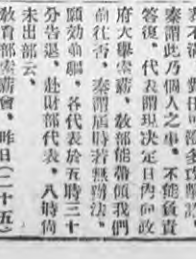 秦謂此乃個人之事、不能負責
答復、代表謂現決定日內向政
府大舉索薪、教部能帶領我們
前往否、秦謂屆時若無辦法、
願効前驅、各代表於五時三十
分告退、赴財部代表、八時尚
未出部云、
教育部索薪會、昨日(二十五)